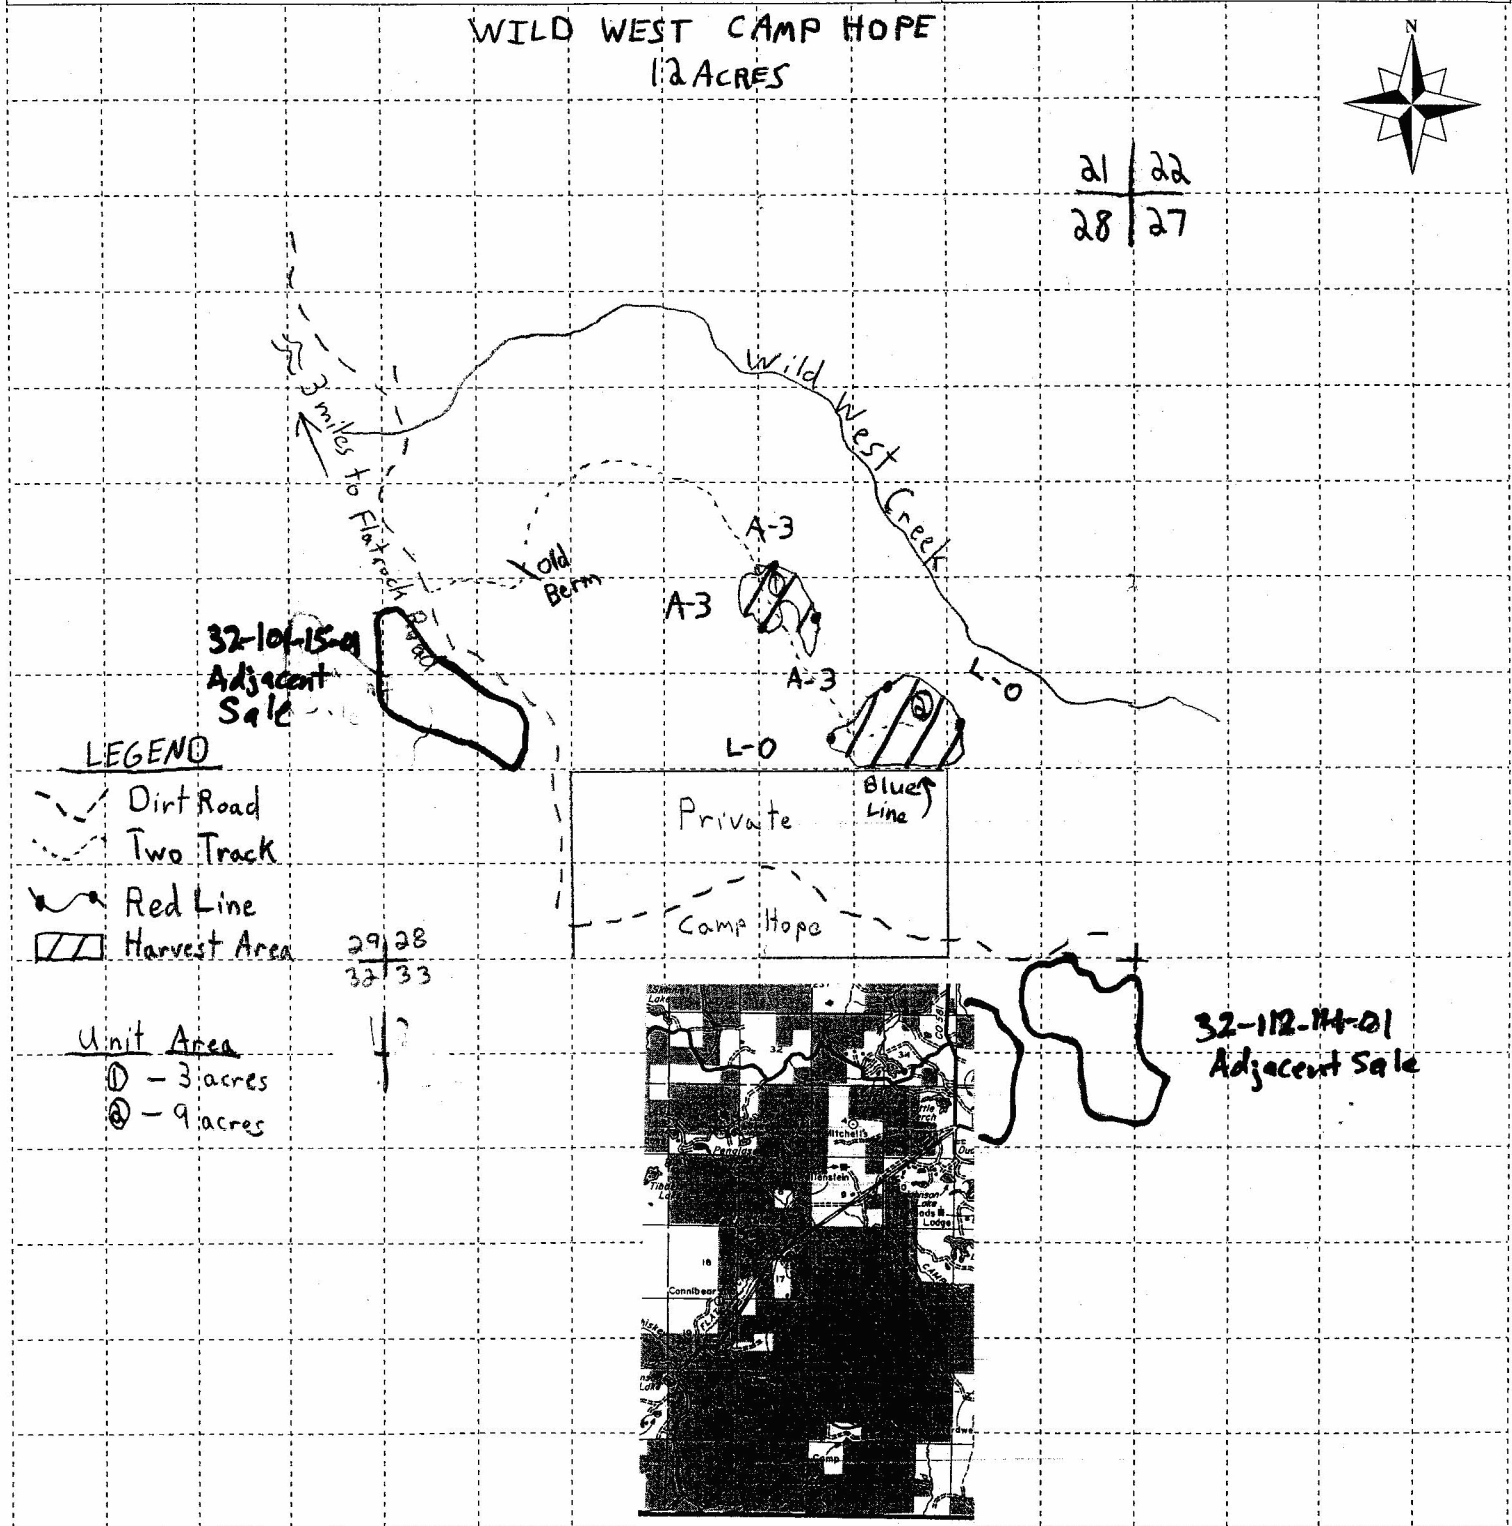 WILD WEST CAMP HOPE
12 ACRES
N
21 22
28 27
≈ 3 miles to Flatrock Road
Wild West Creek
A-3
Old
Berm
A-3
A-3
L-O
L-O
1
2
32-101-15-01
Adjacent
Sale
Blue
Line
Private
Camp Hope
LEGEND
Dirt Road
Two Track
Red Line
Harvest Area
29 28
32 33
Unit Area
① - 3 acres
② - 9 acres
32-112-14-01
Adjacent Sale
Lake
32
34
Mitchell's
18
17
Connibear
Lake
Lodge
Camp